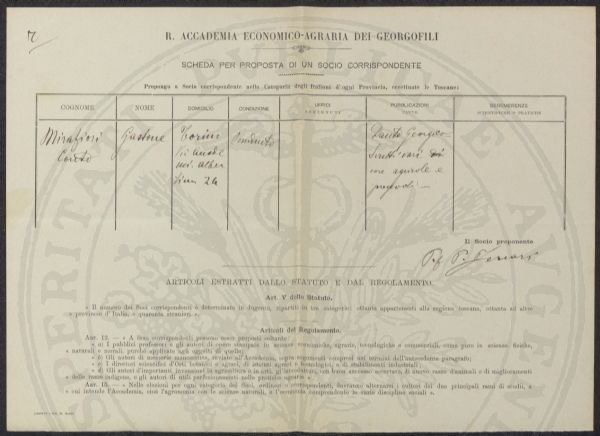 R. ACCADEMIA ECONOMICO-AGRARIA DEI GEORGOFILI
SCHEDA PER PROPOSTA DI UN SOCIO CORRISPONDENTE
Propongo a Socio corrispondente nella Categoria degli Italiani d'ogni Provincia, eccettuate le Toscane:
COGNOME NOME DOMICILIO CONDIZIONE UFFICI PUBBLICAZIONI BENEMERENZE
Mirafiori Gastone Torino
Conte
24
Il Socio proponente
ARTICOLI ESTRATTI DALLO STATUTO E DAL REGOLAMENTO.
Art. V dello Statuto.
« Il numero dei Soci corrispondenti è determinato in dugento, ripartiti in tre categorie: ottanta appartenenti alla regione toscana, ottanta ad altre
« provincie d'Italia, e quaranta stranieri. »
Articoli del Regolamento.
ART. 12. — « A Soci corrispondenti possono esser proposti soltanto:
« a) I pubblici professori e gli autori di opere stampate in scienze economiche, agrarie, tecnologiche e commerciali, come pure in scienze fisiche,
« naturali e morali, purchè applicate agli oggetti di quelle;
« b) Gli autori di memorie manoscritte, inviate all'Accademia, sopra argomenti compresi nei termini dell'antecedente paragrafo;
« c) I direttori scientifici d'Orti botanici e agrari, di istituti agrari e tecnologici, e di stabilimenti industriali;
« d) Gli autori d'importanti invenzioni in agricoltura o in arti, gl'introduttori, con buon successo accertato, di nuove razze d'animali e di miglioramenti
« delle razze indigene, e gli autori di utili perfezionamenti nelle pratiche agrarie. »
ART. 15. — « Nelle elezioni per ogni categoria dei Soci, ordinari e corrispondenti, dovranno alternarsi i cultori dei due principali rami di studii, a
« cui intende l'Accademia, cioè l'agronomia con le scienze naturali, e l'economia comprendente le varie discipline sociali. »